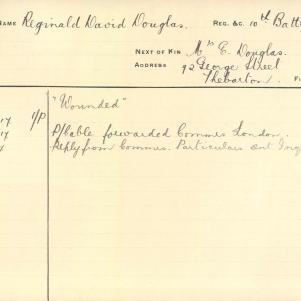 NAME Reginald David Douglas. REG. &C. 10th Batt
NEXT OF KIN Mrs E. Douglas.
ADDRESS 92 George Street
Thebarton.
"Wounded"
17 1/P P/Cable forwarded Commes London.
17 Reply from Commes. Particulars